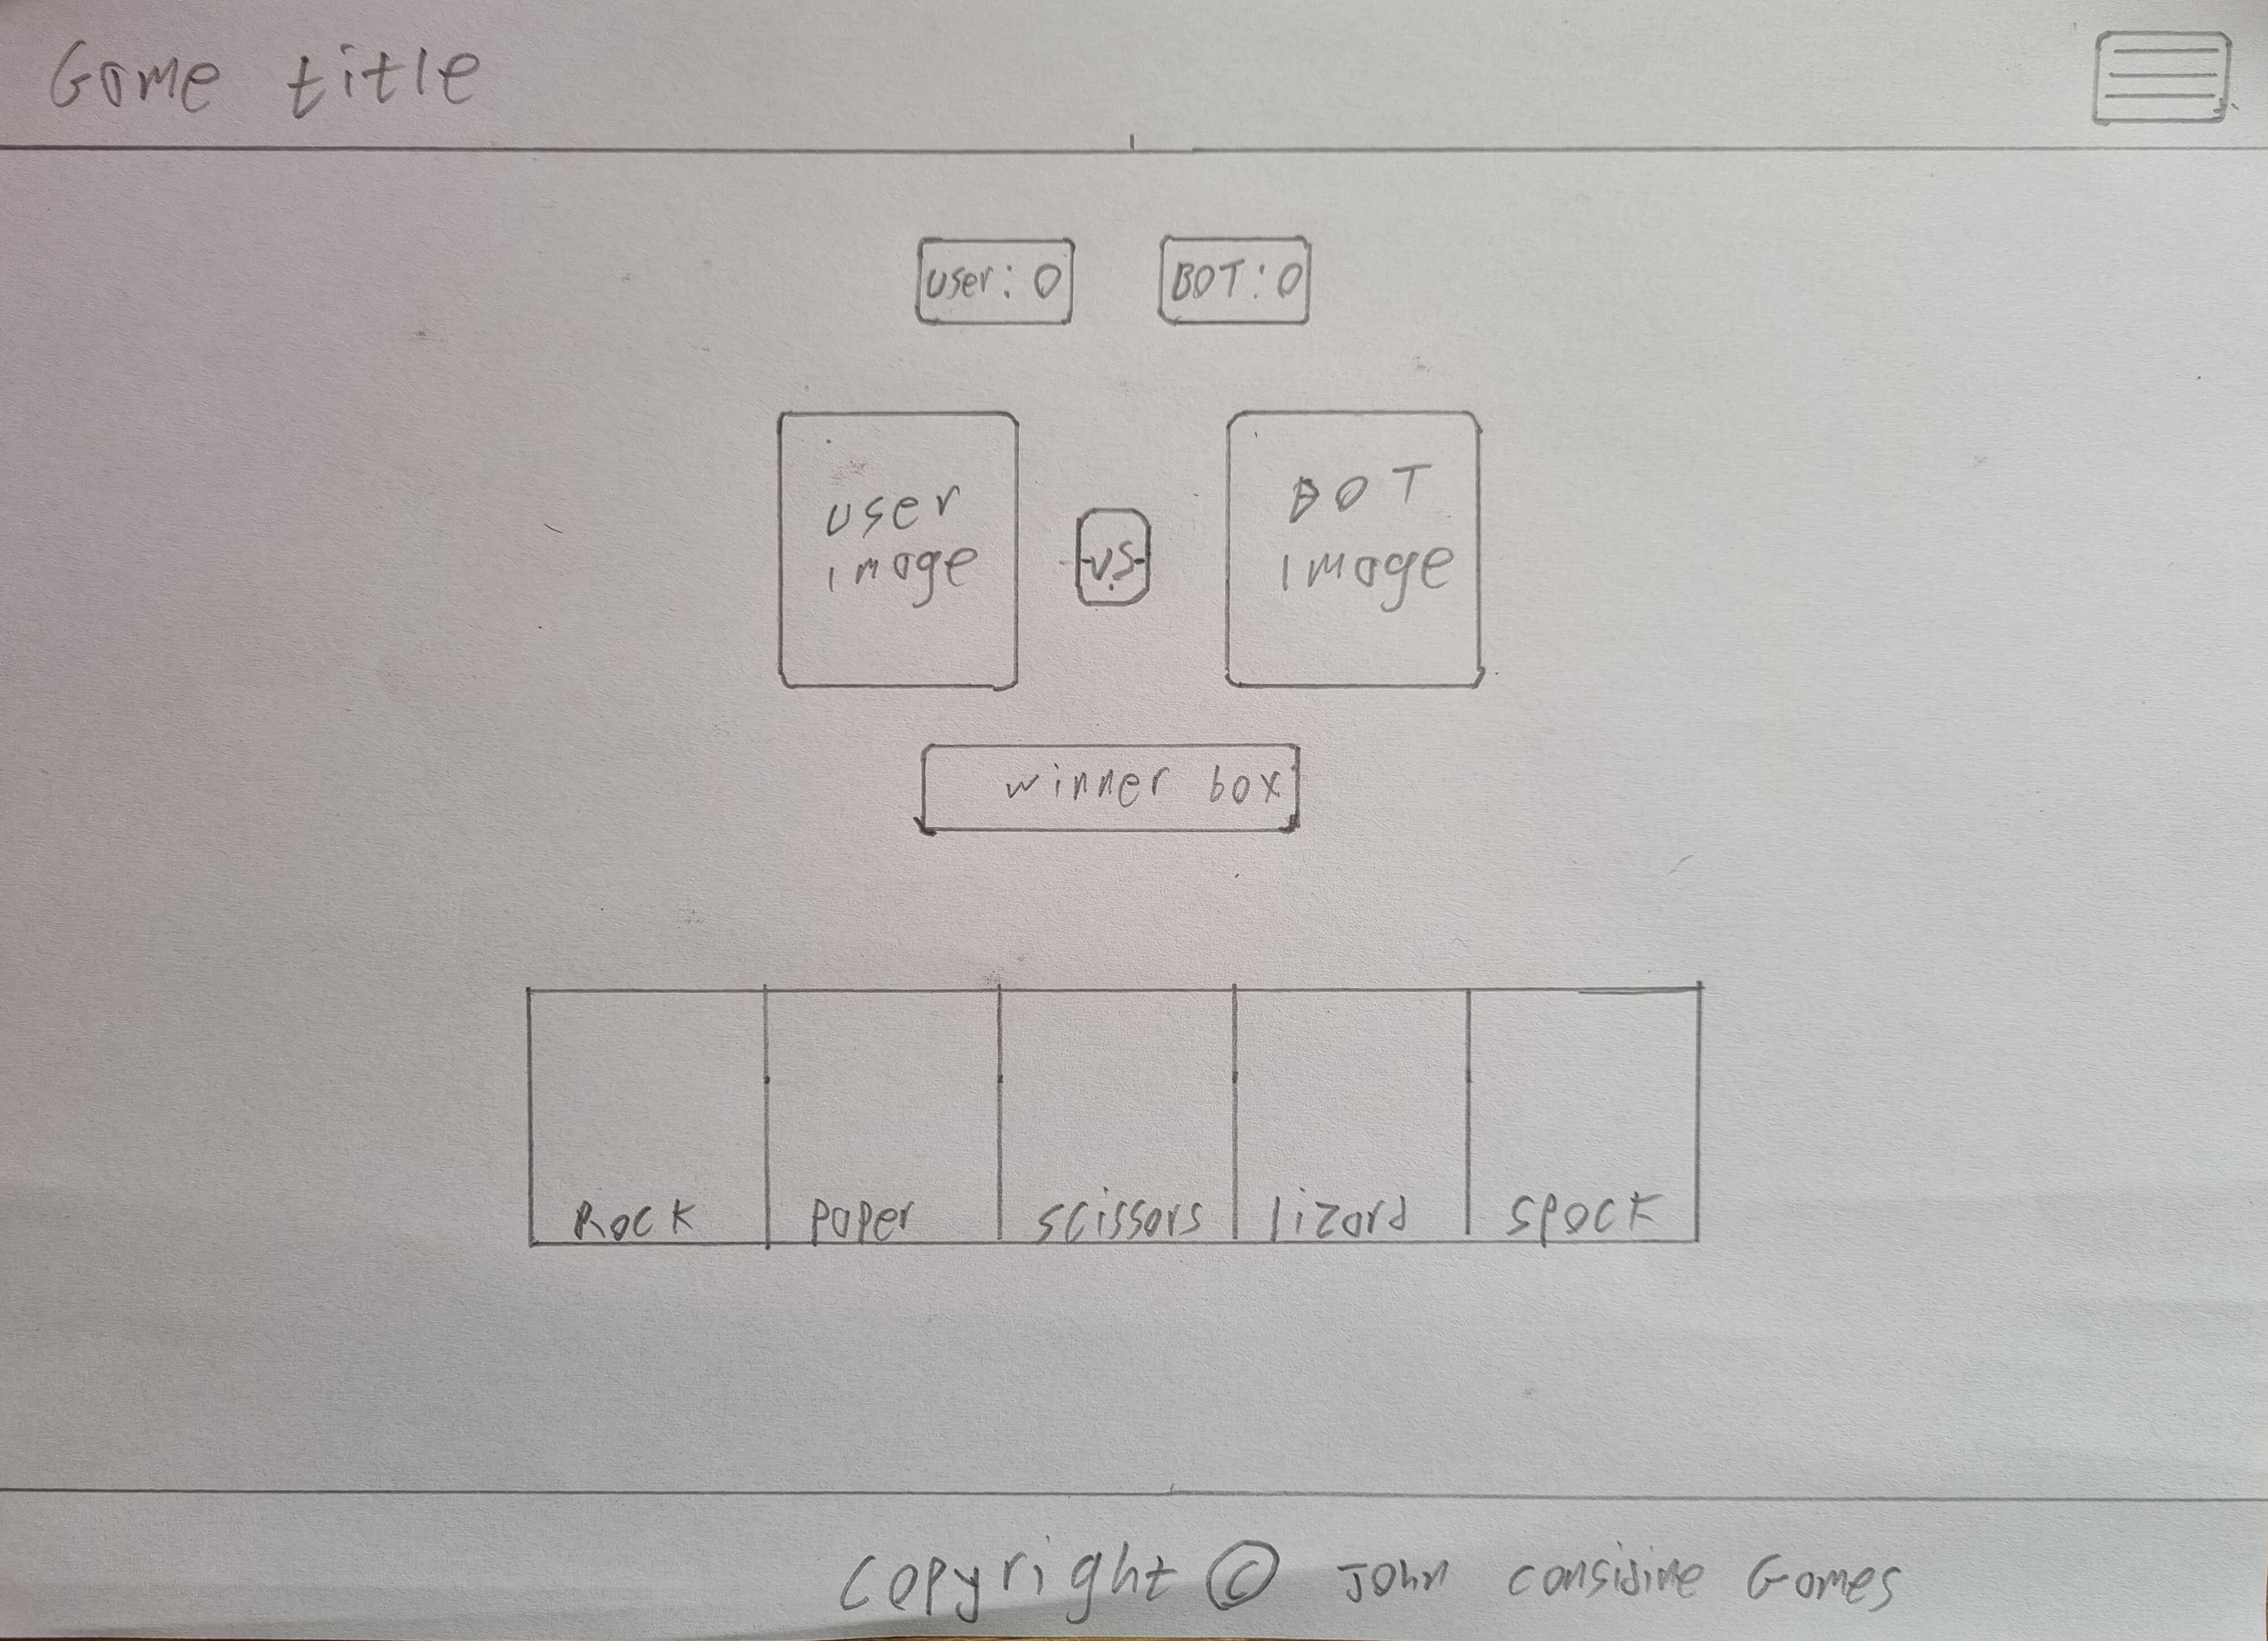 Game title
user: 0
BOT: 0
user
image
vs
BOT
image
winner box
Rock
paper
scissors
lizard
spock
Copyright © John Considine Games